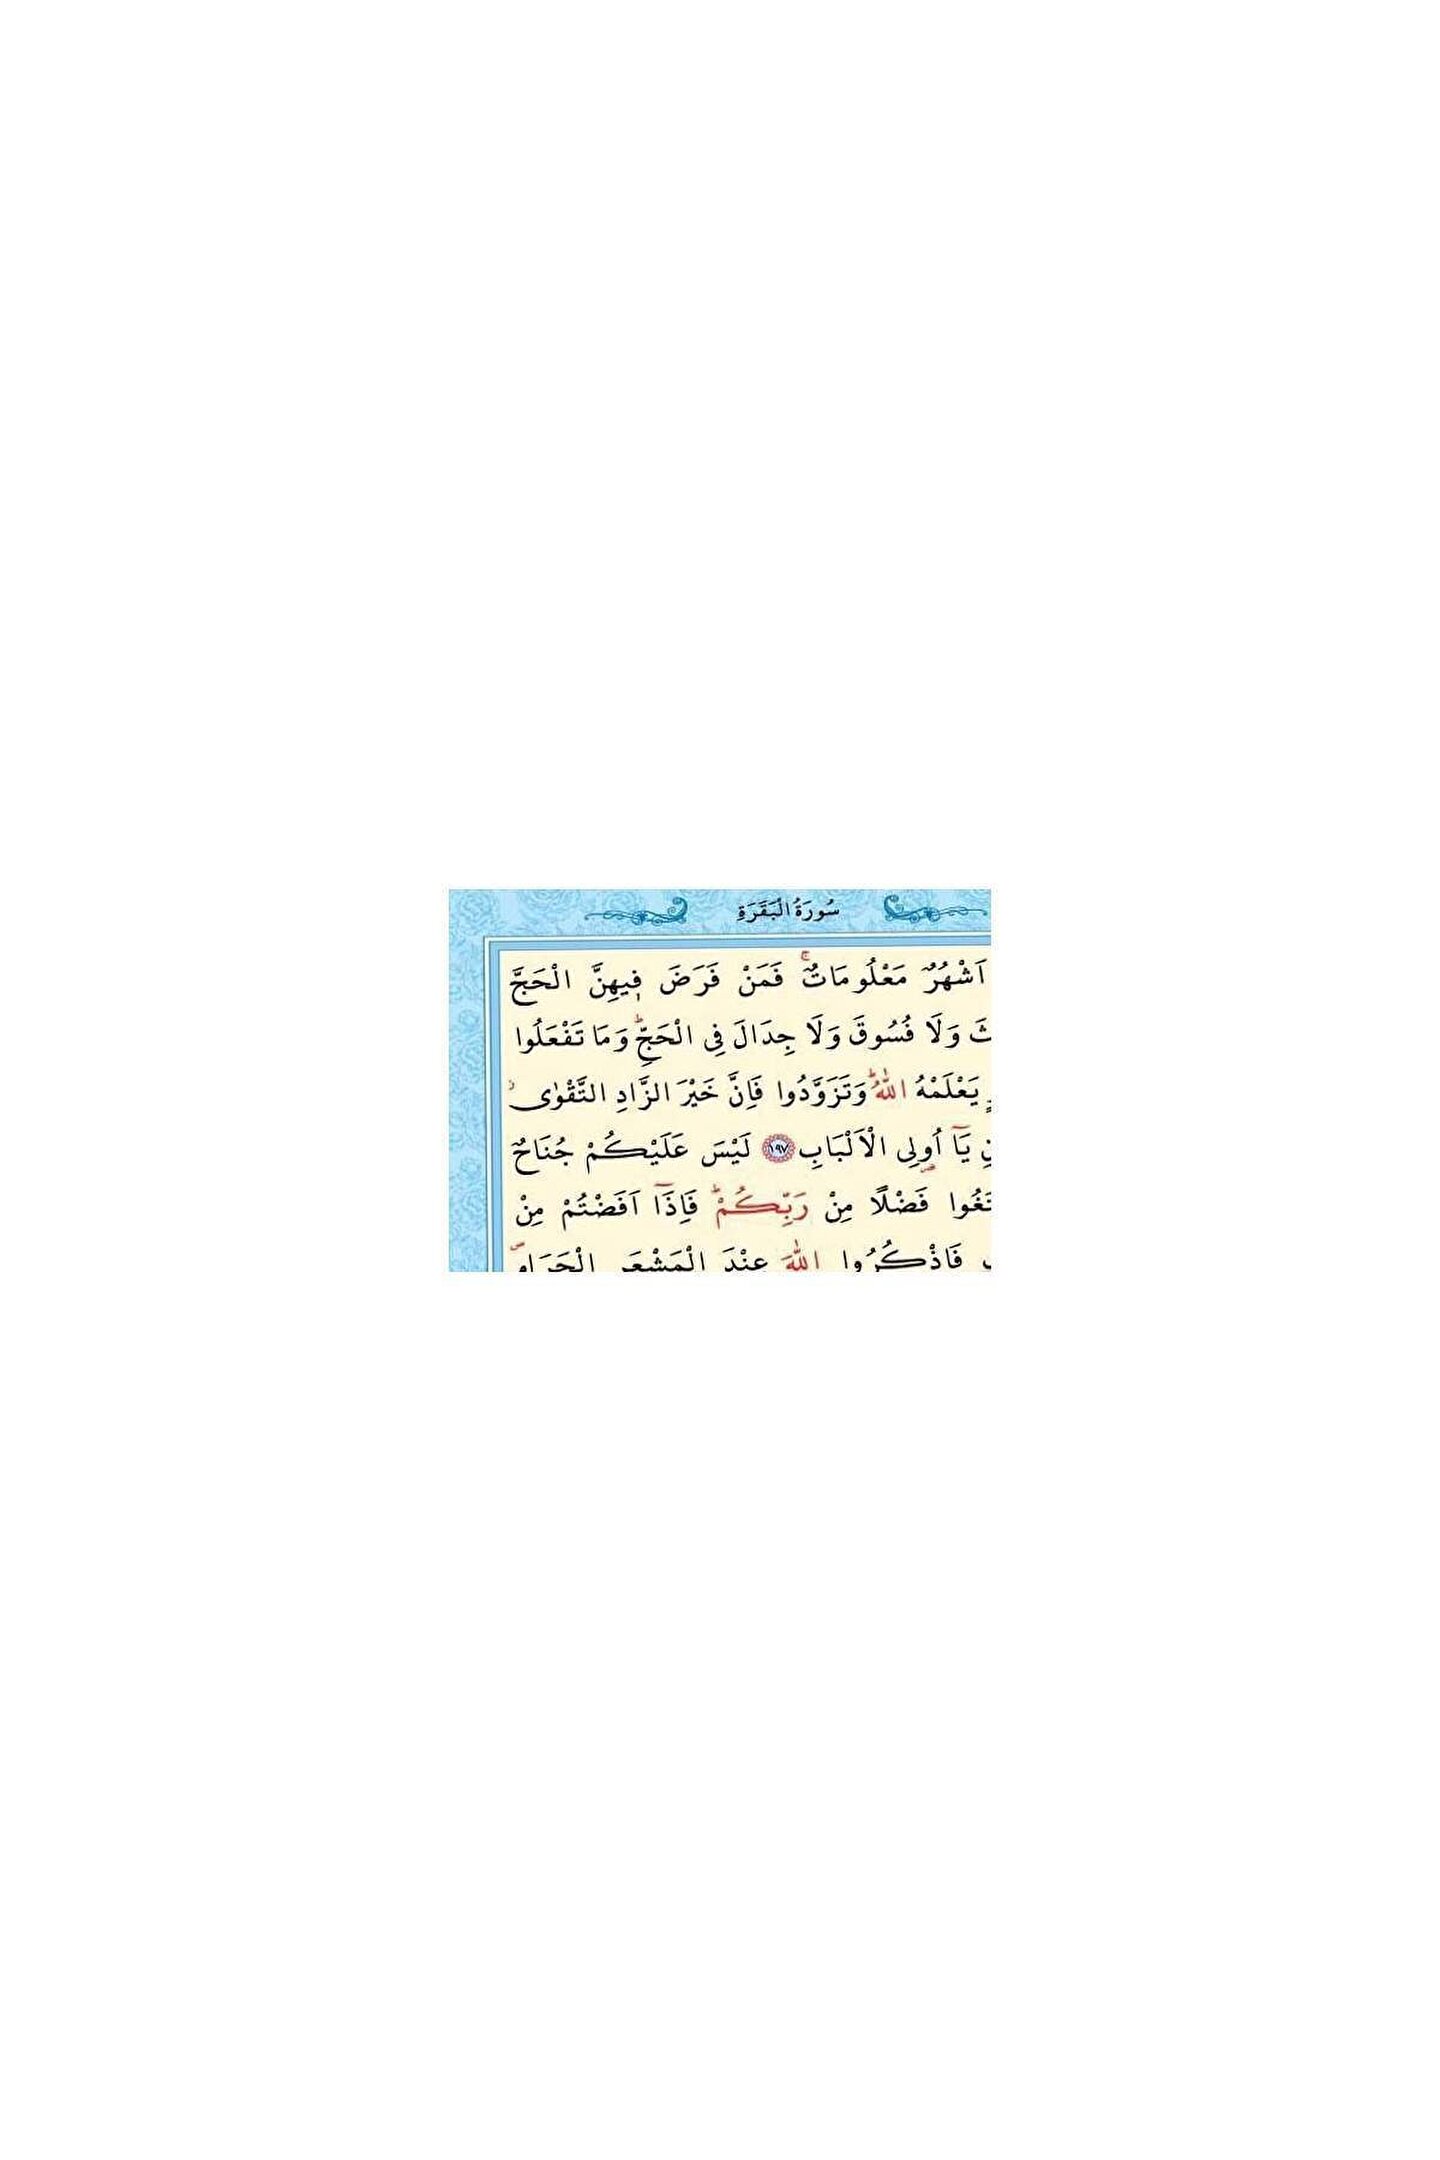 سُورَةُ الْبَقَرَةِ
اَشْهُرٌ مَعْلُومَاتٌۚ فَمَنْ فَرَضَ فٖيهِنَّ الْحَجَّ
ثَ وَلَا فُسُوقَ وَلَا جِدَالَ فِى الْحَجِّؕ وَمَا تَفْعَلُوا
يَعْلَمْهُ اللّٰهُؕ وَتَزَوَّدُوا فَاِنَّ خَيْرَ الزَّادِ التَّقْوٰىؗ
نِ يَٓا اُولِى الْاَلْبَابِ ﴿١٩٧﴾ لَيْسَ عَلَيْكُمْ جُنَاحٌ
تَغُوا فَضْلًا مِنْ رَبِّكُمْؕ فَاِذَٓا اَفَضْتُمْ مِنْ
فَاذْكُرُوا اللّٰهَ عِنْدَ الْمَشْعَرِ الْحَرَامِۖ